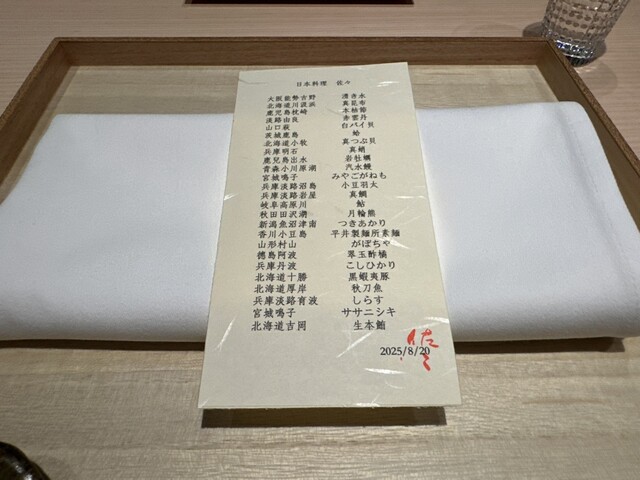 日本料理 佐々
大阪能勢吉野 湧き水
北海道川汲浜 真昆布
鹿児島枕崎 本枯節
淡路由良 赤雲丹
山口萩 白バイ貝
茨城鹿島 蛤
北海道小牧 真つぶ貝
兵庫明石 真蛸
鹿児島出水 岩牡蠣
青森小川原湖 汽水鰻
宮城鳴子 みやこがねもち
兵庫淡路沼島 小豆羽太
兵庫淡路岩屋 真鯛
岐阜高原川 鮎
秋田田沢湖 月輪熊
新潟魚沼津南 つきあかり
香川小豆島 平井製麺所素麺
山形村山 かぼちゃ
徳島阿波 翠玉酢橘
兵庫丹波 こしひかり
北海道十勝 黒蝦夷豚
北海道厚岸 秋刀魚
兵庫淡路育波 しらす
宮城鳴子 ササニシキ
北海道吉岡 生本鮪
2025/8/20
佐々